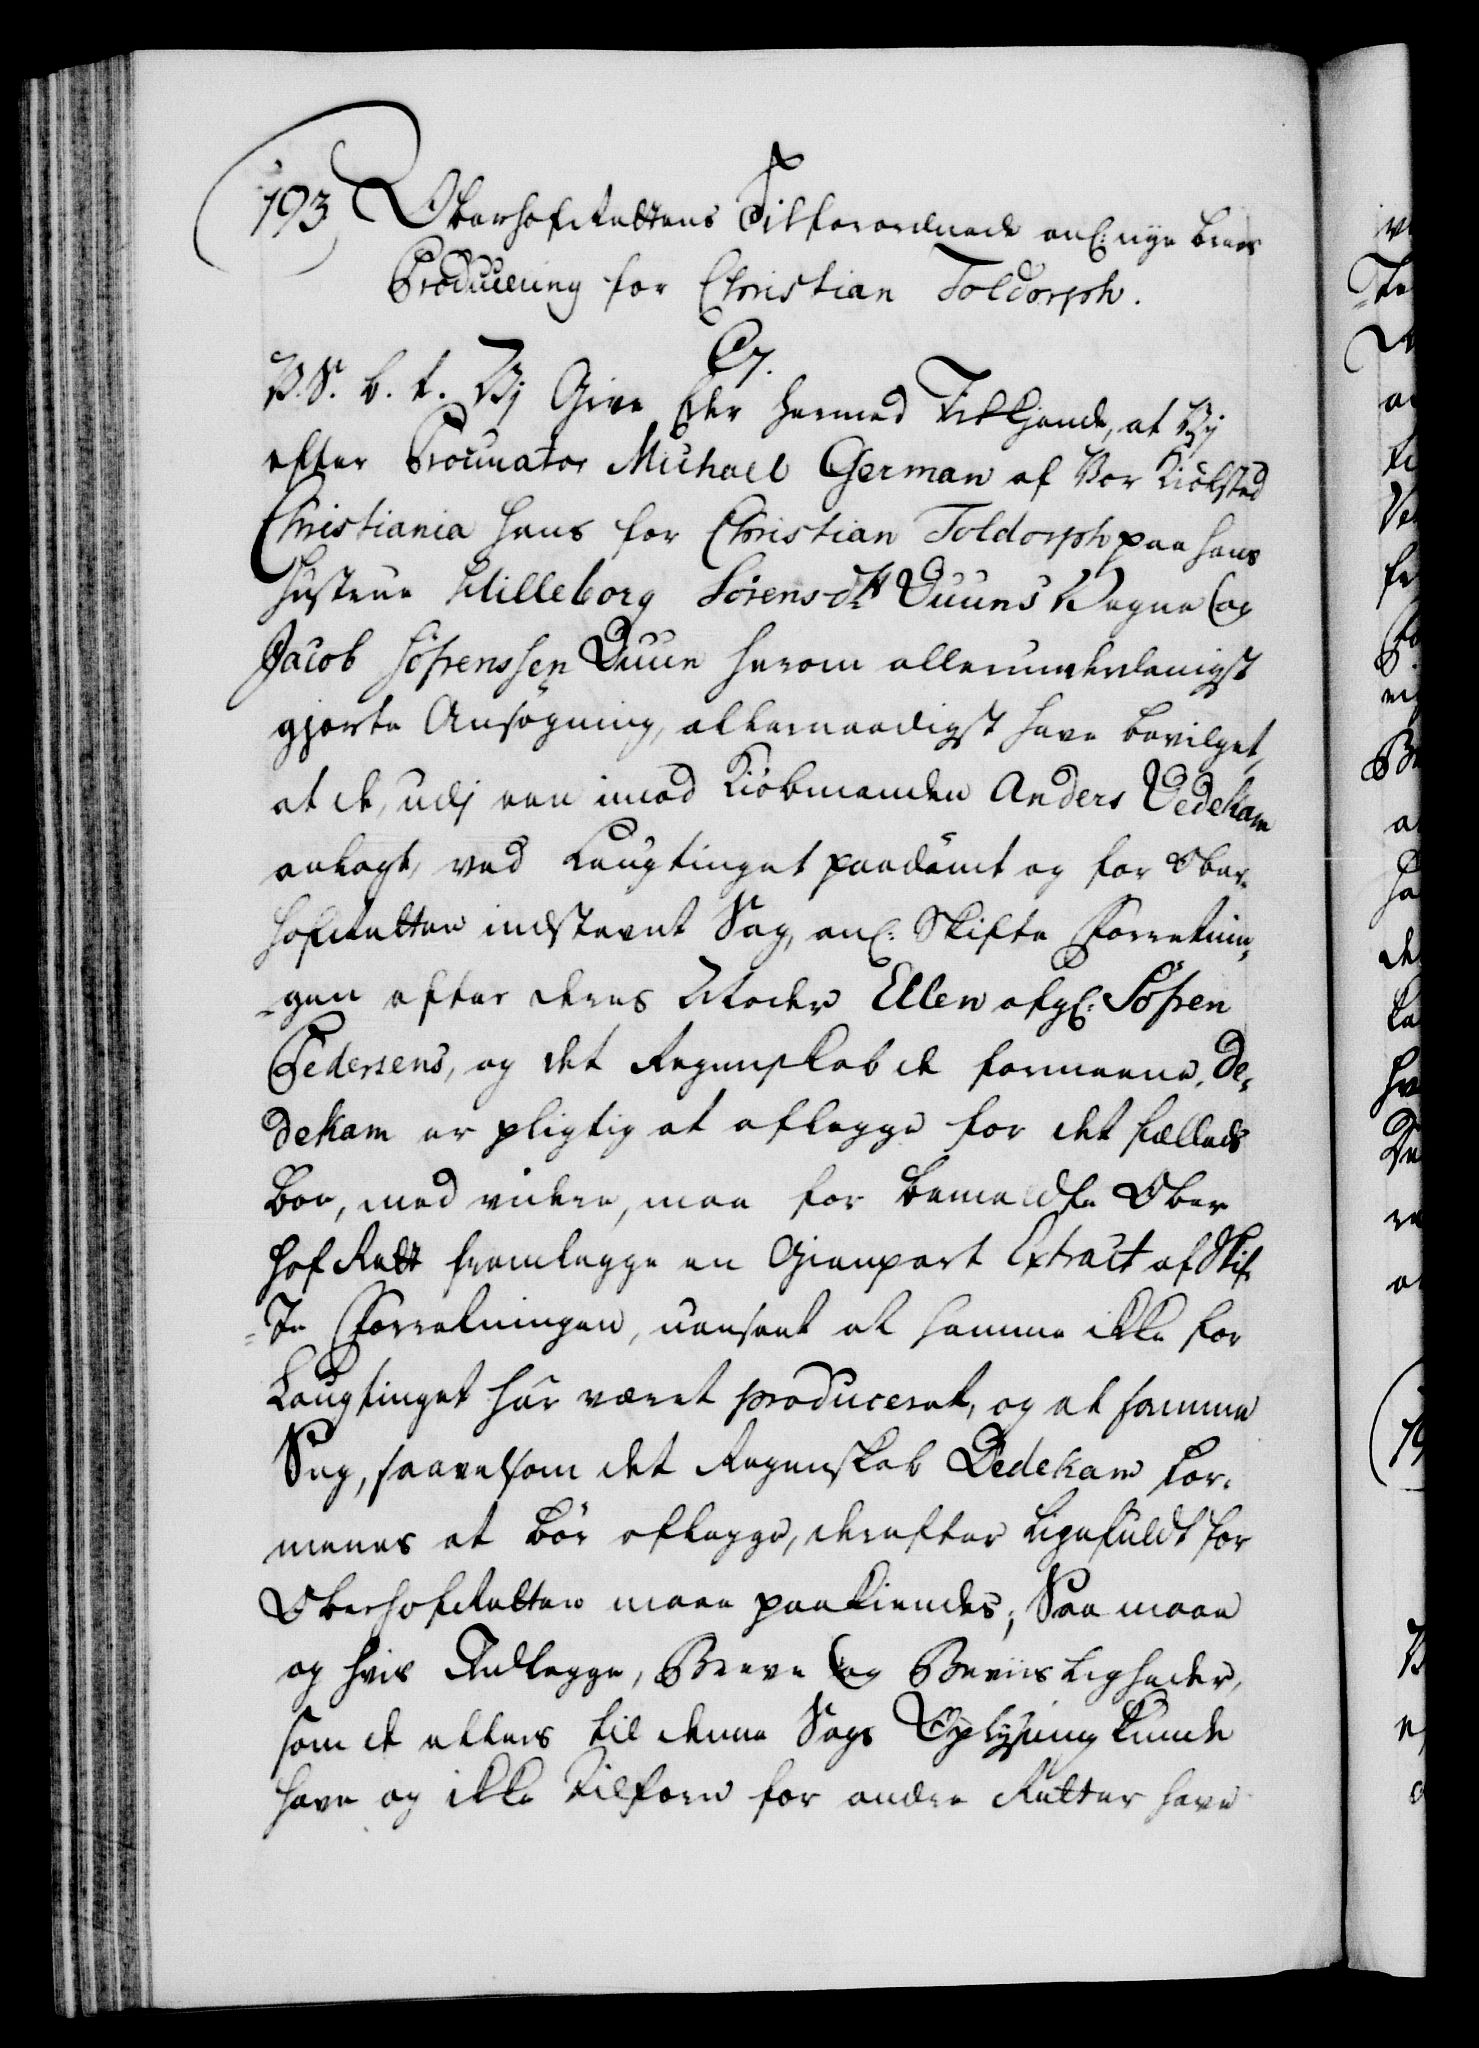 193 Oberhofrettens Tilforordnede anl: nye brevs
Producering for Christian Toldorph.
C7.
V. S. b. t. Vj Give Eder hermed Tilkjende, at Vj
efter Procurator Michael German af Vor Kiøbsted
Christiania hans for Christian Toldorph paa hans
Hustrue Milleborg Sørens dtr Duuns Vegne og
Jacob Søfrenssen Duun herom allerunderdanigst
gjorte Ansøgning, allernaadigst have bevilget,
at de, udj een imod Kiøbmanden Anders Dedekam
anlagt, ved Laugtinget paadømt og for Ober-
hofretten indstevnt Sag, anl: Skifte Forretnin-
-gen efter deres Moder Ellen afg: Søfren
Pedersens, og det Regenskab de formeene, De-
dekam er pligtig at aflegge for det fælleds
Boe, med videre, maa for bemeldte Ober
hof Rett fremlegge en Gienpart Extract af Skif-
=te Forretningen, uanseet at samme ikke for
Laugtinget har været produceret, og at samme
Sag, saavelsom det Regenskab Dedekam for-
menes at bør aflegge, derefter ligefuldt for
Oberhofretten maae paakiendes; Saa maae
og hvis Indlegge, Breve og Beviisligheder,
som de ellers til denne Sags Oplysning kunde
have og ikke tilforn for andre Retter have